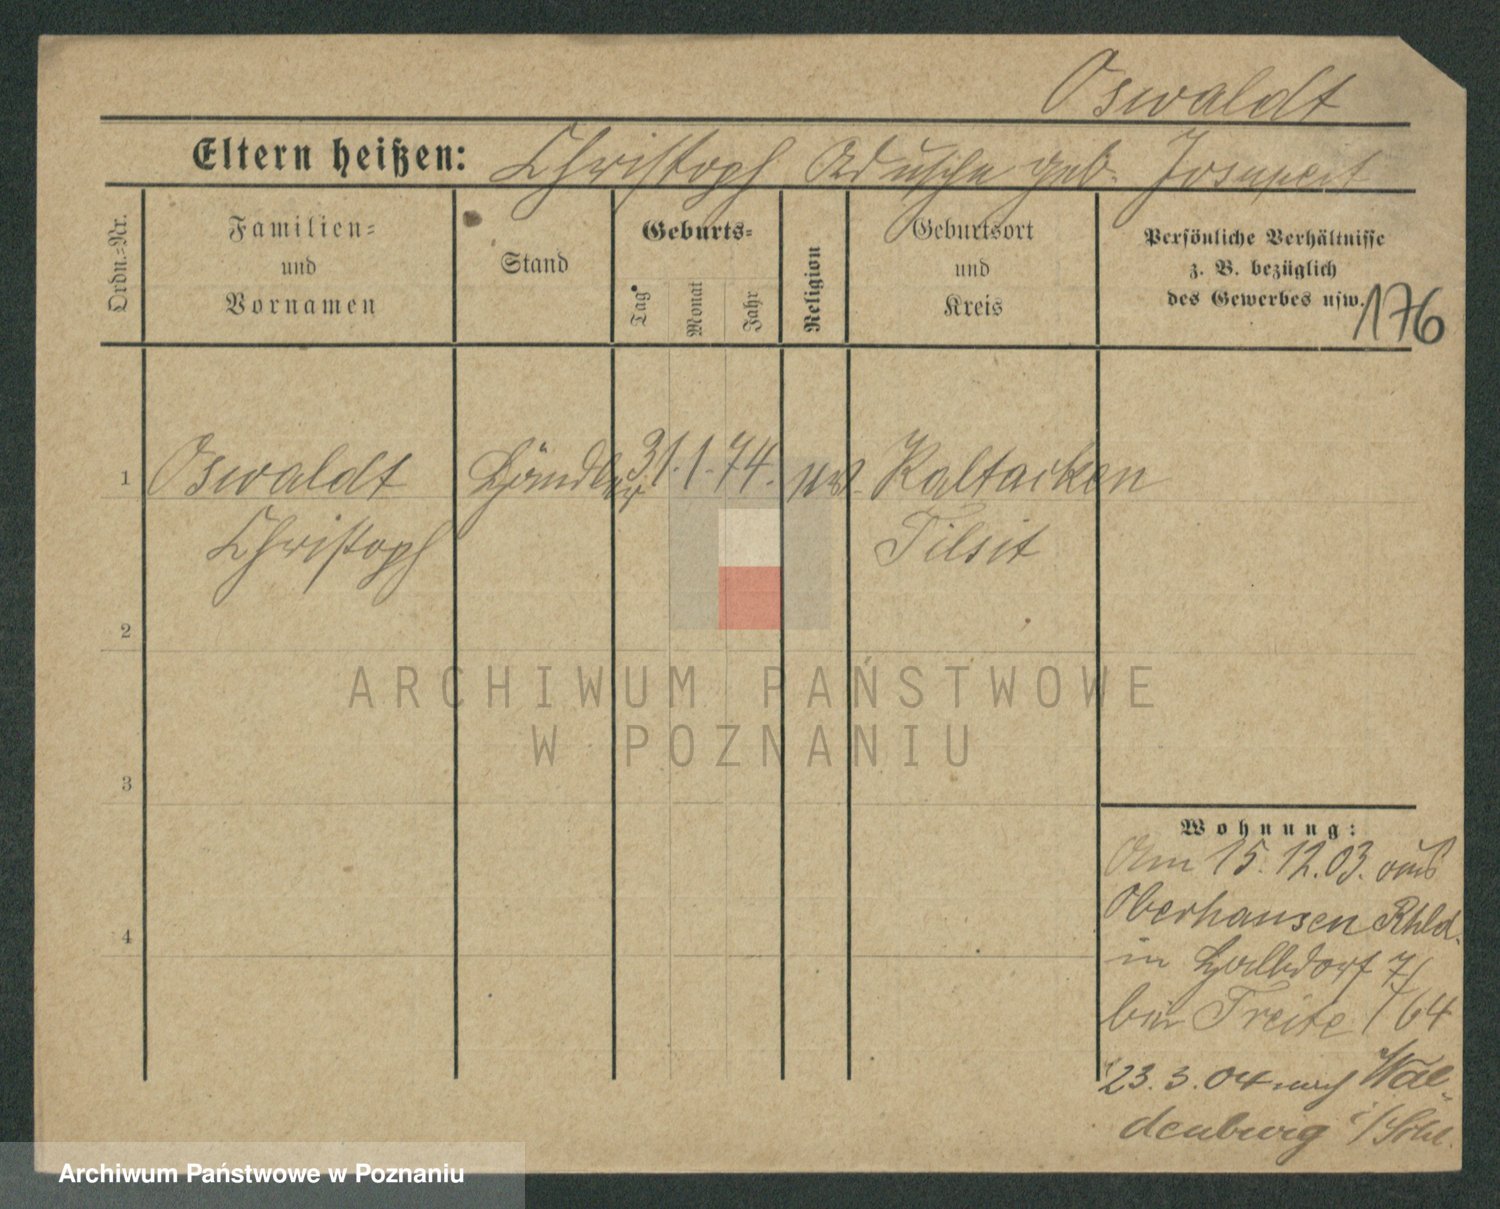 Oswaldt
Eltern heißen: Christoph Adusche geb. Josupeit
Ordn.=Nr.
Familien=
und
Vornamen
Stand
Geburts=
Tag
Monat
Jahr
Religion
Geburtsort
und
Kreis
Persönliche Verhältnisse
z. B. bezüglich
des Gewerbes usw.
176
1 Oswaldt Händler 31. 1. 74. Kaltecken
Christoph Tilsit
2
3
4
Wohnung:
Am 15. 12. 03. aus
Oberhausen Rhld.
in Halbdorf 7/
bei Treite /64
23. 3. 04 nach Wal-
denburg i/Schl.
ARCHIWUM PAŃSTWOWE
W POZNANIU
Archiwum Państwowe w Poznaniu